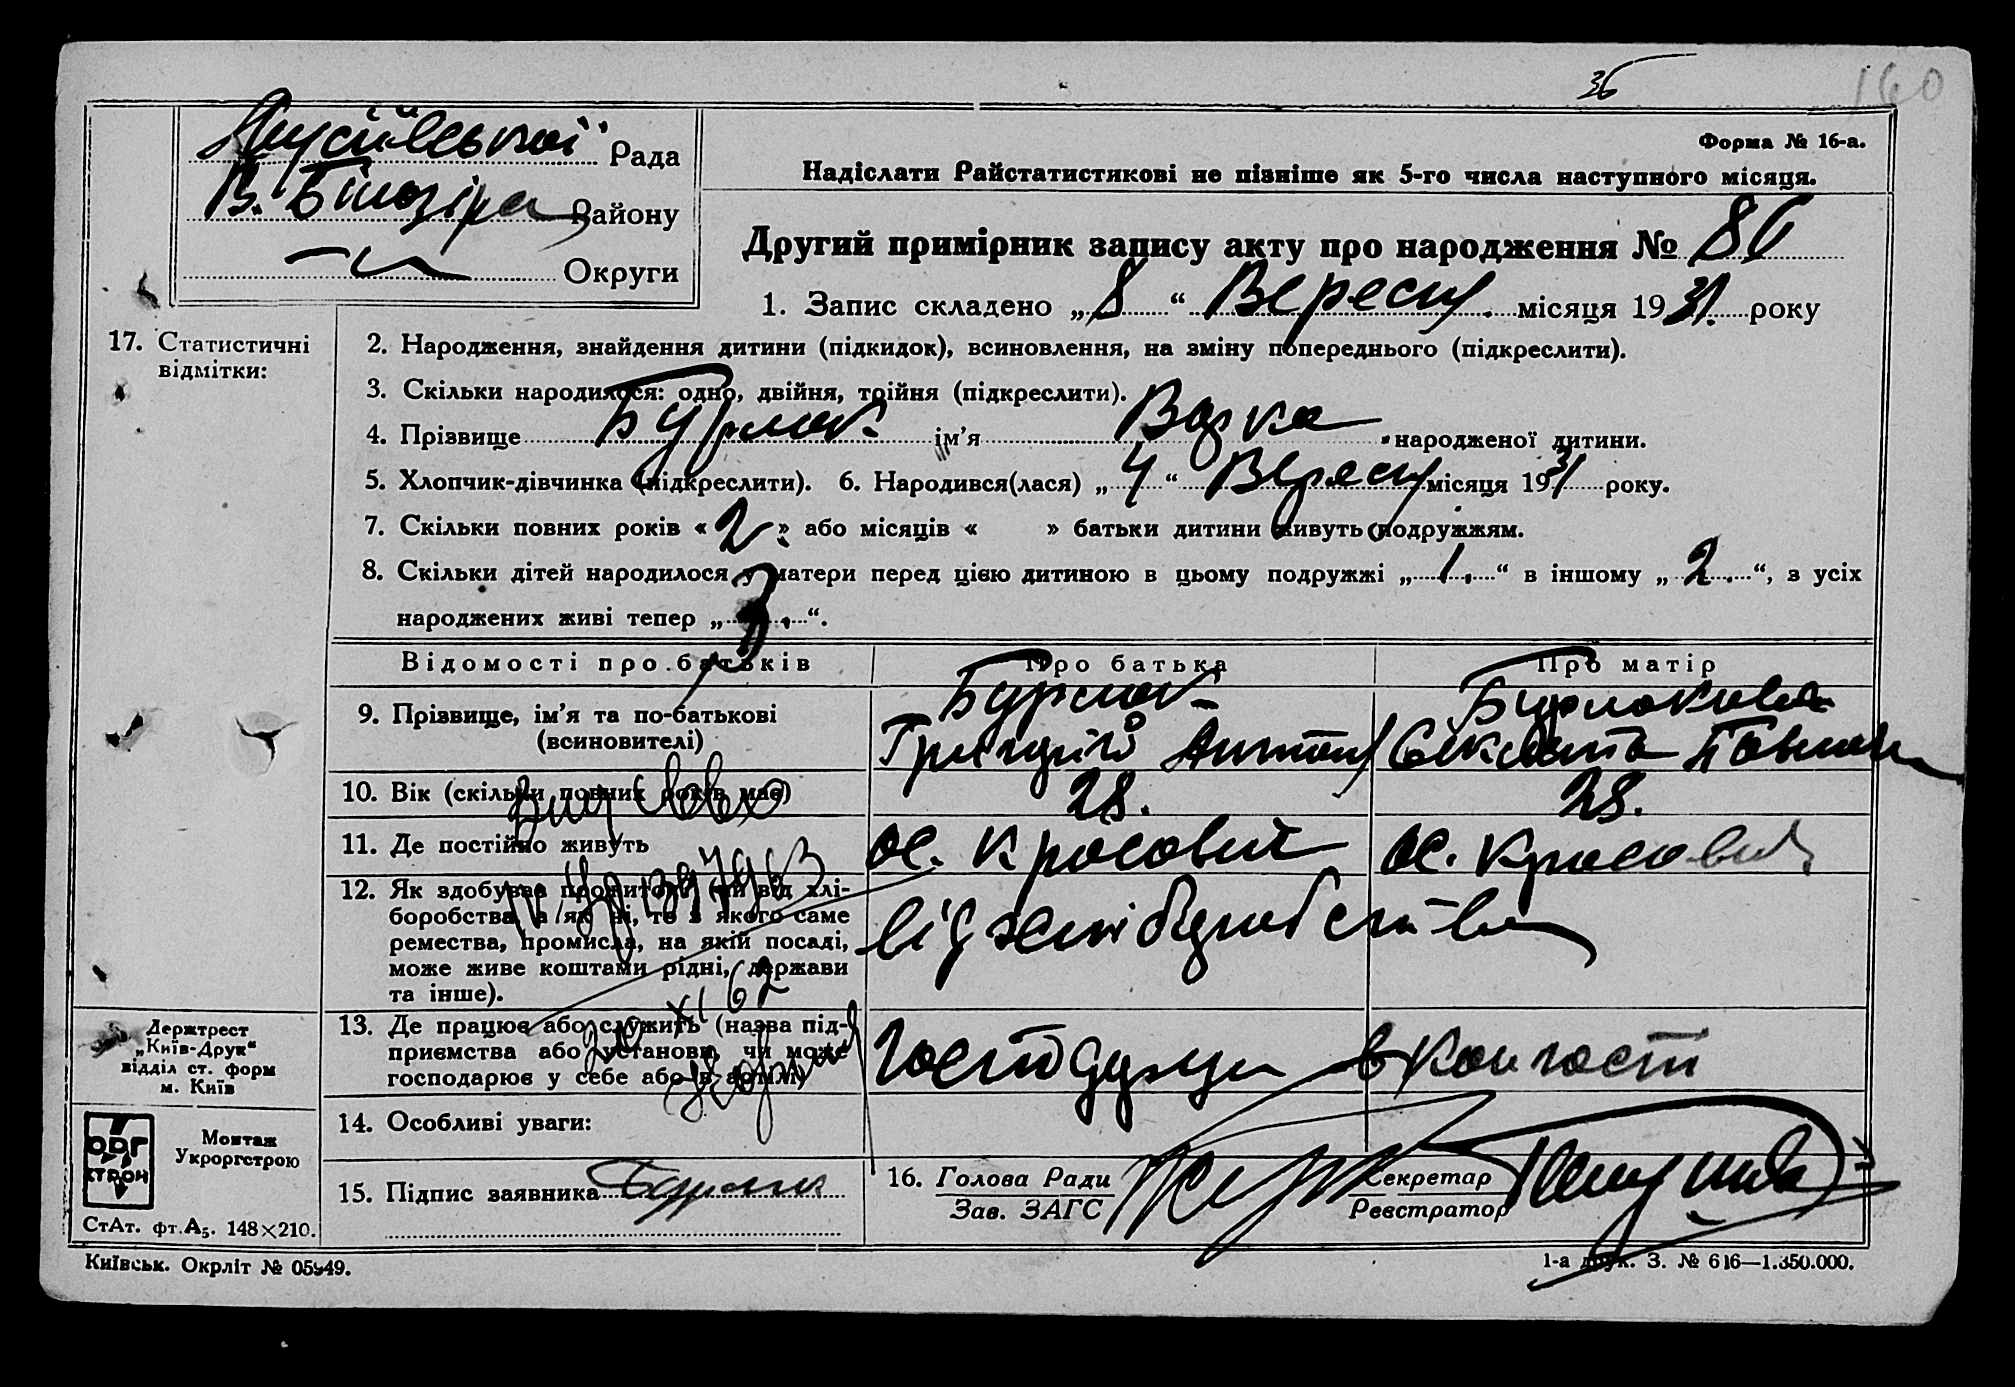 36
160
Мусіївської Рада
В. Бшозіра Району
Округи
Форма № 16-а.
Надіслати Райстатистикові не пізніше як 5-го числа наступного місяця.
Другий примірник запису акту про народження № 86
1. Запис складено „8“ Вересня місяця 1931 року
17. Статистичні
відмітки:
2. Народження, знайдення дитини (підкидок), всиновлення, на зміну попереднього (підкреслити).
3. Скільки народилося: одно, двійня, трійня (підкреслити).
4. Прізвище Бурлак ім’я Варка народженої дитини.
5. Хлопчик-дівчинка (підкреслити). 6. Народився(лася) „4“ Вересня місяця 1931 року.
7. Скільки повних років «2» або місяців « » батьки дитини живуть подружжям.
8. Скільки дітей народилося у матери перед цією дитиною в цьому подружжі „1.“ в іншому „2.“, з усіх
народжених живі тепер „3.“.
Відомості про батьків Про батька Про матір
9. Прізвище, ім’я та по-батькові
(всиновителі)
Бурлак
Григорій Антон
Бурлакова
Оксана Павлов
10. Вік (скільки повних років має) 28. 28.
11. Де постійно живуть
ос. Красовий ос. Красовий
12. Як здобуває прожиток (чи від хлі-
боробства, а як ні, то з якого саме
ремества, промисла, на якій посаді,
може живе коштами рідні, держави
та інше).
від хліборобства
20 XI 62
13. Де працює або служить (назва під-
приємства або установи, чи може
господарює у себе або в артілі)
в колгоспі
14. Особливі уваги:
15. Підпис заявника Бурлак
16. Голова Ради
Зав. ЗАГС
Секретар
Реєстратор
Держтрест
„Київ-Друк“
відділ ст. форм
м. Київ
ОРГ
СТРОЙ
Монтаж
Укроргстрою
СтАт. фт.А5. 148×210.
Київськ. Окрліт № 05949.
1-а друк. З. № 616—1.350.000.